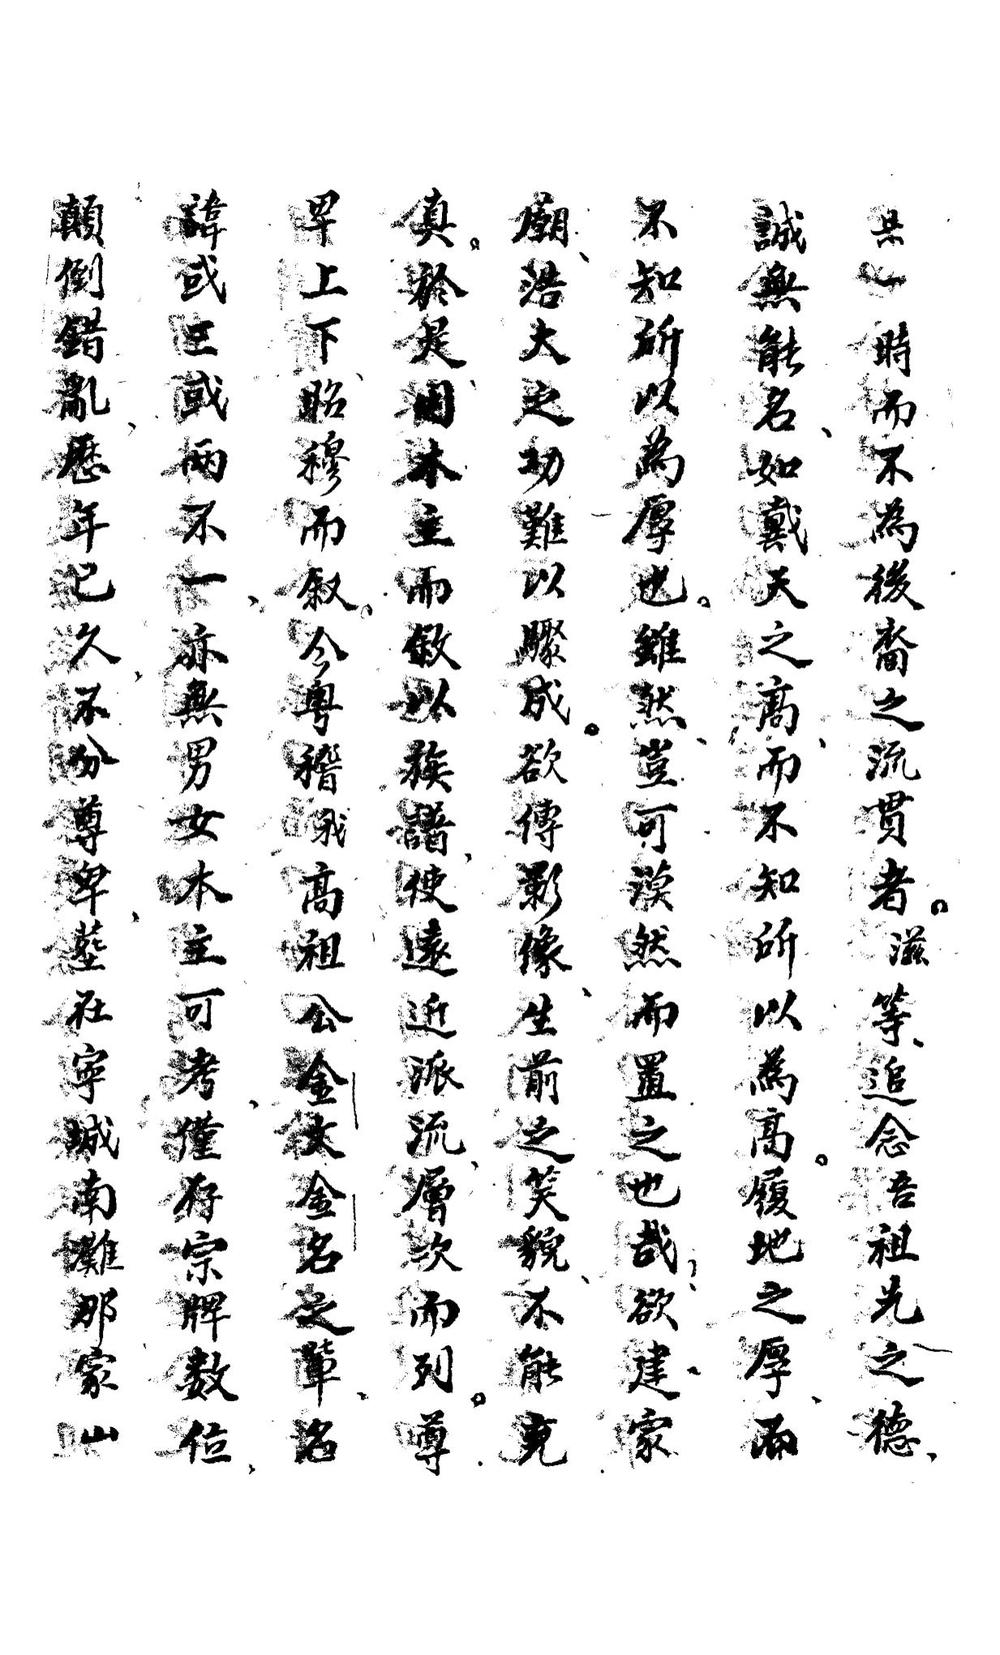 時而不為後裔之流貫者。滋等、追念吾祖先之德、
誠無能名、如戴天之高、而不知所以為高。履地之厚、而
不知所以為厚也。雖然、豈可漠然而置之也哉、欲建家
廟、浩大之功難以驟成。欲傳影像、生前之笑貌、不能克
真。於是、因木主而敘以族譜、使遠近派流、層次而列。尊
卑上下、昭穆而叙。今粵稽我高祖公金文金名之輩、名
諱或三或兩不一、亦無男女木主可考、僅存宗牌数位、
顛倒錯亂、歷年已久、不分尊卑、塋在寧城南灘那家山